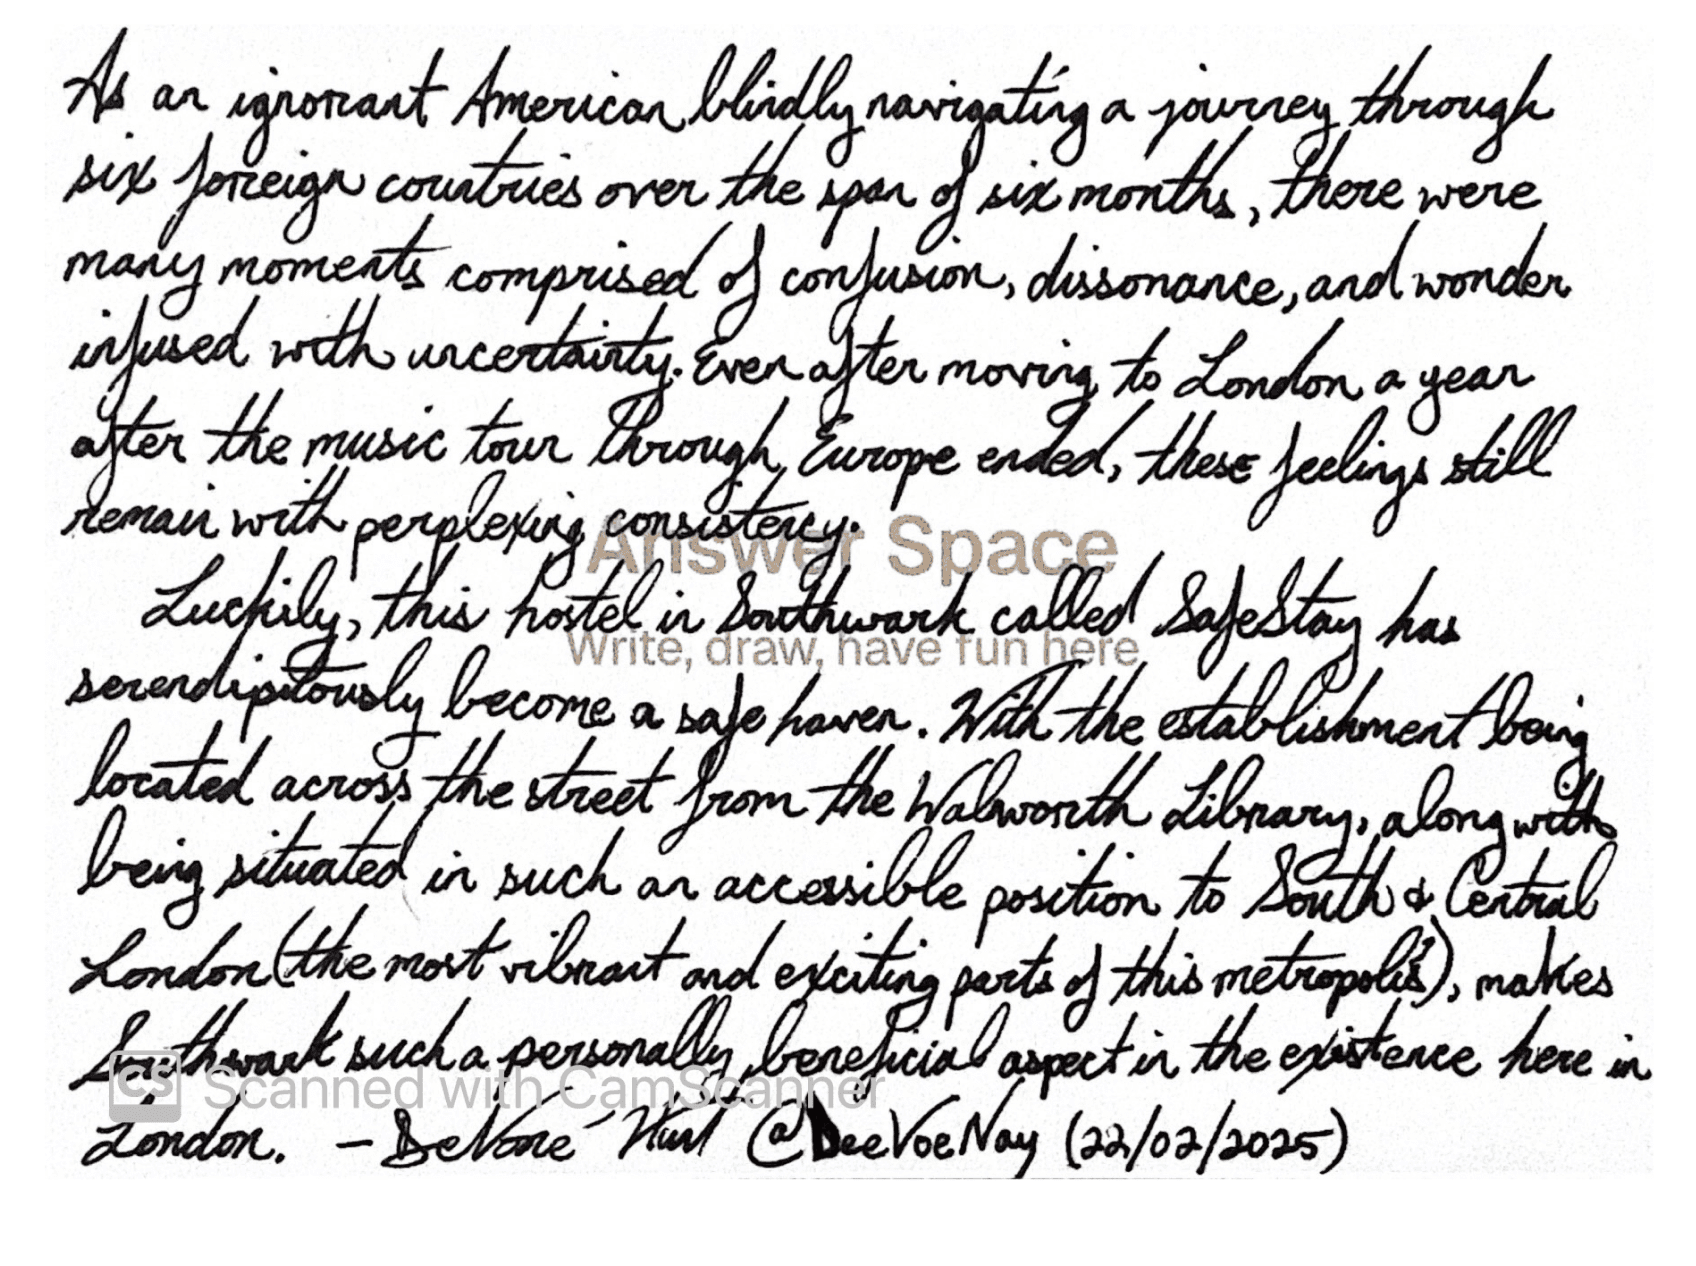 As an ignorant American blindly navigating a journey through
six foreign countries over the span of six months, there were
many moments comprised of confusion, dissonance, and wonder
infused with uncertainty. Even after moving to London a year
after the music tour through Europe ended, these feelings still
remain with perplexing consistency.
Answer Space
Luckily, this hostel in Southwark called SafeStay has
Write, draw, have fun here
serendipitously become a safe haven. With the establishment being
located across the street from the Walworth Library, along with
being situated in such an accessible position to South & Central
London (the most vibrant and exciting parts of this metropolis), makes
Southwark such a personally beneficial aspect in the existence here in
CS Scanned with CamScanner
London. - @DeeVoeNay (22/02/2025)